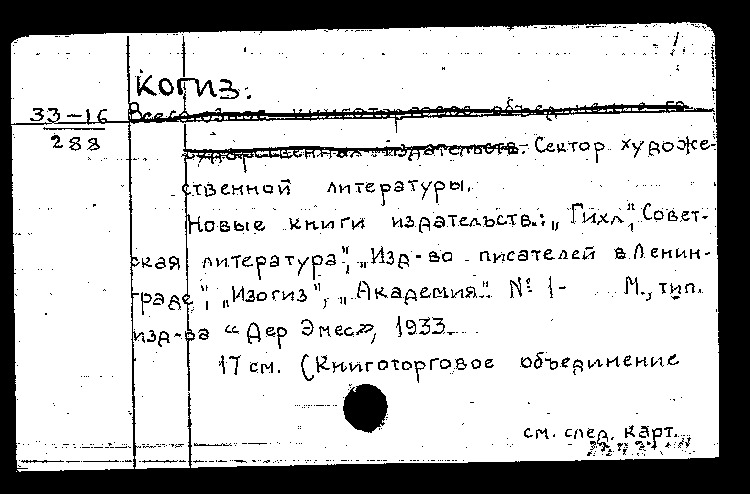 1.
КОГИЗ.
33-16
288
Всесоюзное книготорговое объединение го-
сударственных издательств. Сектор художе-
ственной литературы.
Новые книги издательств.: „Гихл", Совет-
ская литература", „Изд-во писателей в Ленин-
граде", „Изогиз", „Академия". № 1- М., тип.
изд-ва "Дер Эмес", 1933.
17 см. (Книготорговое объединение
см. след. карт.